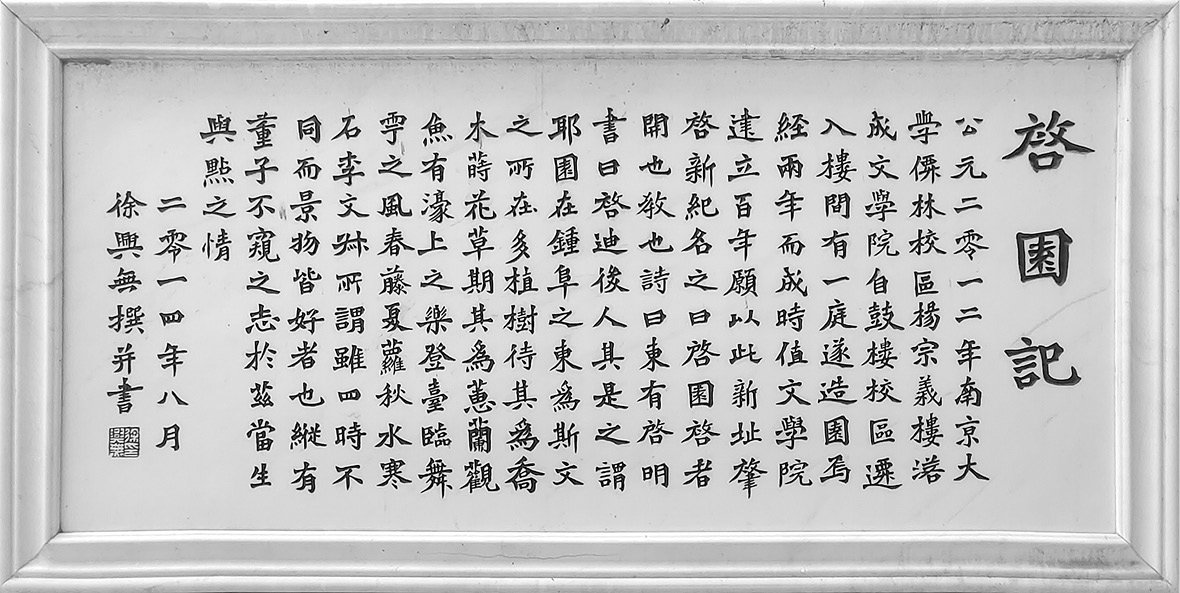 啓園記
公元二零一二年南京大
學僊林校區楊宗義樓落
成文學院自鼓樓校區遷
入樓間有一庭遂造園焉
經兩年而成時值文學院
建立百年願以此新址肇
啓新紀名之曰啓園啓者
開也敎也詩曰東有啓明
書曰啓迪後人其是之謂
耶園在鍾阜之東為斯文
之所在多植樹待其為喬
木蒔花草期其為蕙蘭觀
魚有濠上之樂登臺臨舞
雩之風春藤夏蘿秋水寒
石李文叔所謂雖四時不
同而景物皆好者也縱有
董子不窺之志於茲當生
與點之情
二零一四年八月
徐興無撰并書